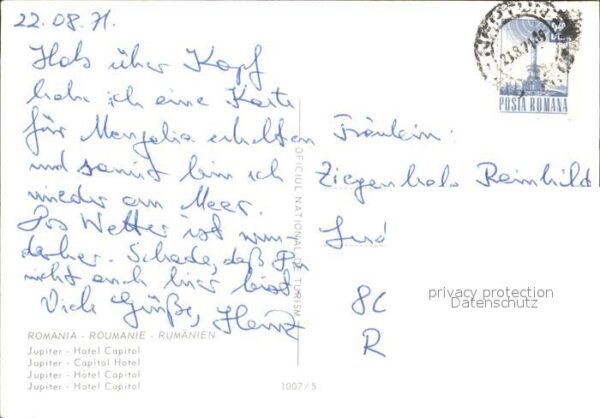 22.08.71.
Hals über Kopf
habe ich eine Karte
für Mangalia erhalten
und somit bin ich
wieder am Meer.
Das Wetter ist wun-
derbar. Schade, daß Du
nicht auch hier bist.
Viele Grüße, Heinz
ROMANIA - ROUMANIE - RUMÄNIEN
Jupiter - Hotel Capitol
Jupiter - Capitol Hotel
Jupiter - Hôtel Capitol
Jupiter - Hotel Capitol
OFICIUL NATIONAL DE TURISM
1007/5
POSTA ROMANA
Fräulein:
Ziegenhals Reinhild
8C
R
privacy protection
Datenschutz